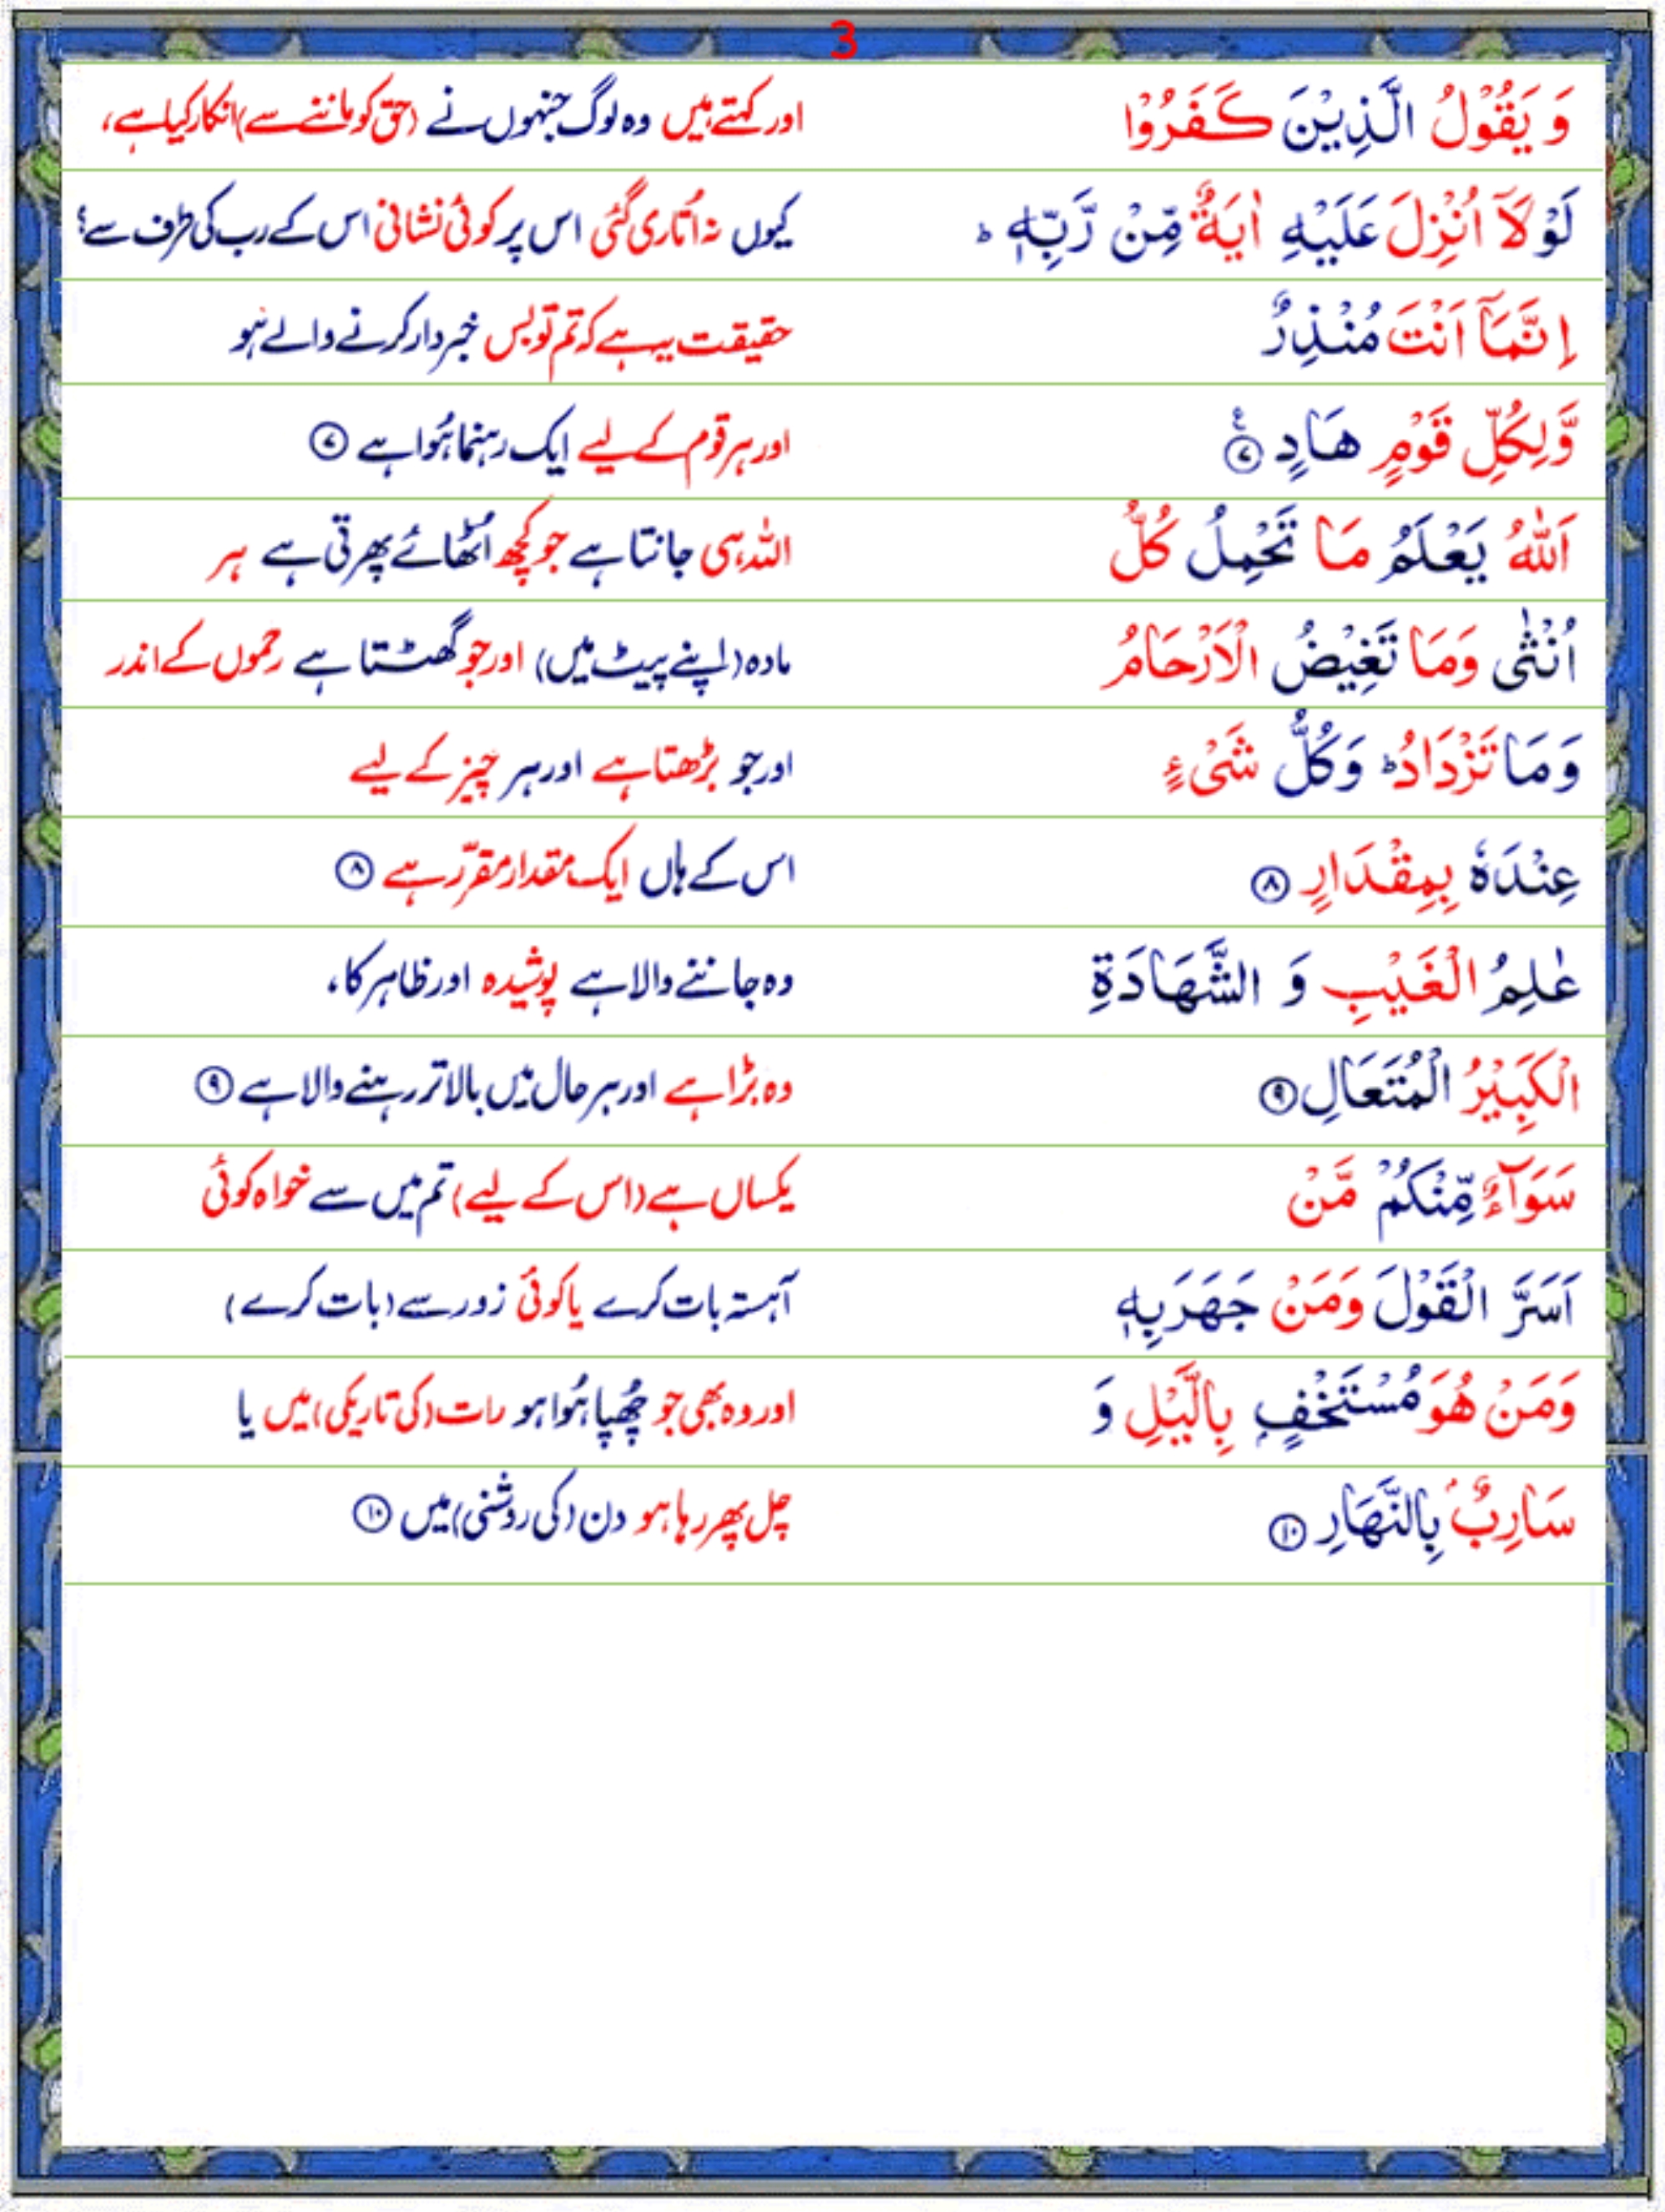 3
وَ يَقُوْلُ الَّذِيْنَ كَفَرُوْا اور کہتے ہیں وہ لوگ جنہوں نے (حق کو ماننے سے) انکار کیا ہے،
لَوْ لَآ اُنْزِلَ عَلَيْهِ اٰيَةٌ مِّنْ رَّبِّهٖ ؕ کیوں نہ اُتاری گئی اس پر کوئی نشانی اس کے رب کی طرف سے؟
اِنَّمَآ اَنْتَ مُنْذِرٌ حقیقت یہ ہے کہ تم تو بس خبردار کرنے والے ہو
وَّلِكُلِّ قَوْمٍ هَادٍ ۷ اور ہر قوم کے لیے ایک رہنما ہُوا ہے ۷
اَللّٰهُ يَعْلَمُ مَا تَحْمِلُ كُلُّ اللہ ہی جانتا ہے جو کچھ اُٹھائے پھرتی ہے ہر
اُنْثٰى وَمَا تَغِيْضُ الْاَرْحَامُ مادہ (اپنے پیٹ میں) اور جو گھٹتا ہے رحموں کے اندر
وَمَا تَزْدَادُ ؕ وَكُلُّ شَىْءٍ اور جو بڑھتا ہے اور ہر چیز کے لیے
عِنْدَهٗ بِمِقْدَارٍ ۸ اس کے ہاں ایک مقدار مقرّر ہے ۸
عٰلِمُ الْغَيْبِ وَ الشَّهَادَةِ وہ جاننے والا ہے پوشیدہ اور ظاہر کا،
الْكَبِيْرُ الْمُتَعَالِ ۹ وہ بڑا ہے اور ہر حال میں بالاتر رہنے والا ہے ۹
سَوَآءٌ مِّنْكُمْ مَّنْ یکساں ہے (اس کے لیے) تم میں سے خواہ کوئی
اَسَرَّ الْقَوْلَ وَمَنْ جَهَرَ بِهٖ آہستہ بات کرے یا کوئی زور سے (بات کرے)
وَمَنْ هُوَ مُسْتَخْفٍۭ بِالَّيْلِ وَ اور وہ بھی جو چُھپا ہُوا ہو رات (کی تاریکی) میں یا
سَارِبٌۢ بِالنَّهَارِ ۱۰ چل پھر رہا ہو دن (کی روشنی) میں ۱۰